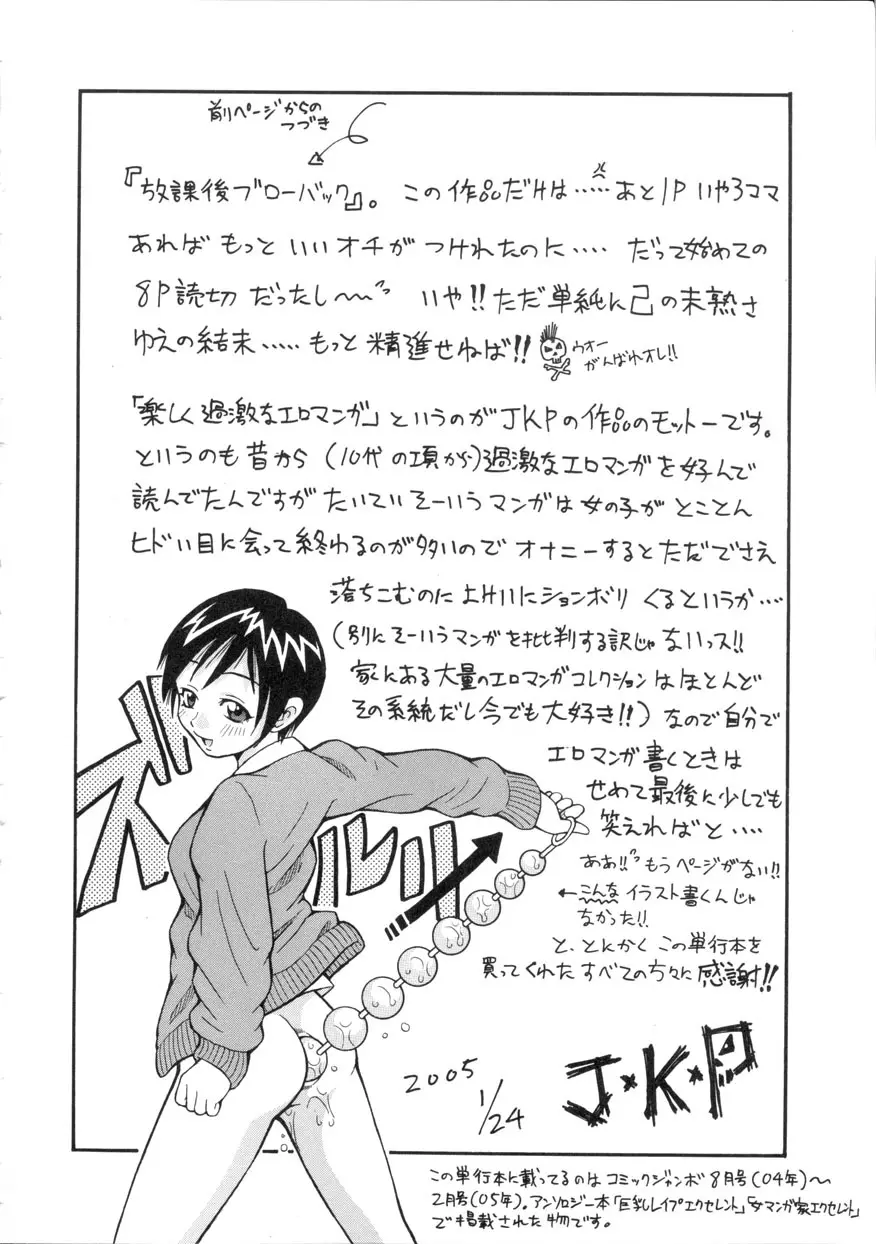 前ページからの
つづき
『放課後ブローバック』。この作品だけは……あと1Pいやろママ
あればもっといいオチがつけれたのに…. だって始めての
8P読切だったし〜〜 いや!!ただ単純に己の未熟さ
ゆえの結末…..もっと精進せねば!!
ウオー
がんばれオレ!!
「楽しく過激なエロマンガ」というのがJKPの作品のモットーです。
というのも昔から(10代の項から)過激なエロマンガを好んで
読んでたんですがたいていそーいうマンガは女の子がとことん
ヒドい目に会って終わるのが多いのでオナニーするとただでさえ
落ちこむのによけいにションボリくるというか…
(別にそーいうマンガを批判する訳じゃないっス!!
家にある大量のエロマンガコレクションはほとんど
その系統だし今でも大好き!!)なので自分で
エロマンガ書くときは
せめて最後に少しでも
笑えればと….
ああ!!もうページがない!!
←こんなイラスト書くんじゃ
なかった!!
と、とにかくこの単行本を
買ってくれたすべての方々に感謝!!
ズルルリ
2005
1/24
J・K・P
この単行本に載ってるのはコミックジャンボ8月号(04年)〜
2月号(05年)。アンソロジー本「巨乳レイプエクセレント」「女マンガ家エクセレント」
で掲載された物です。